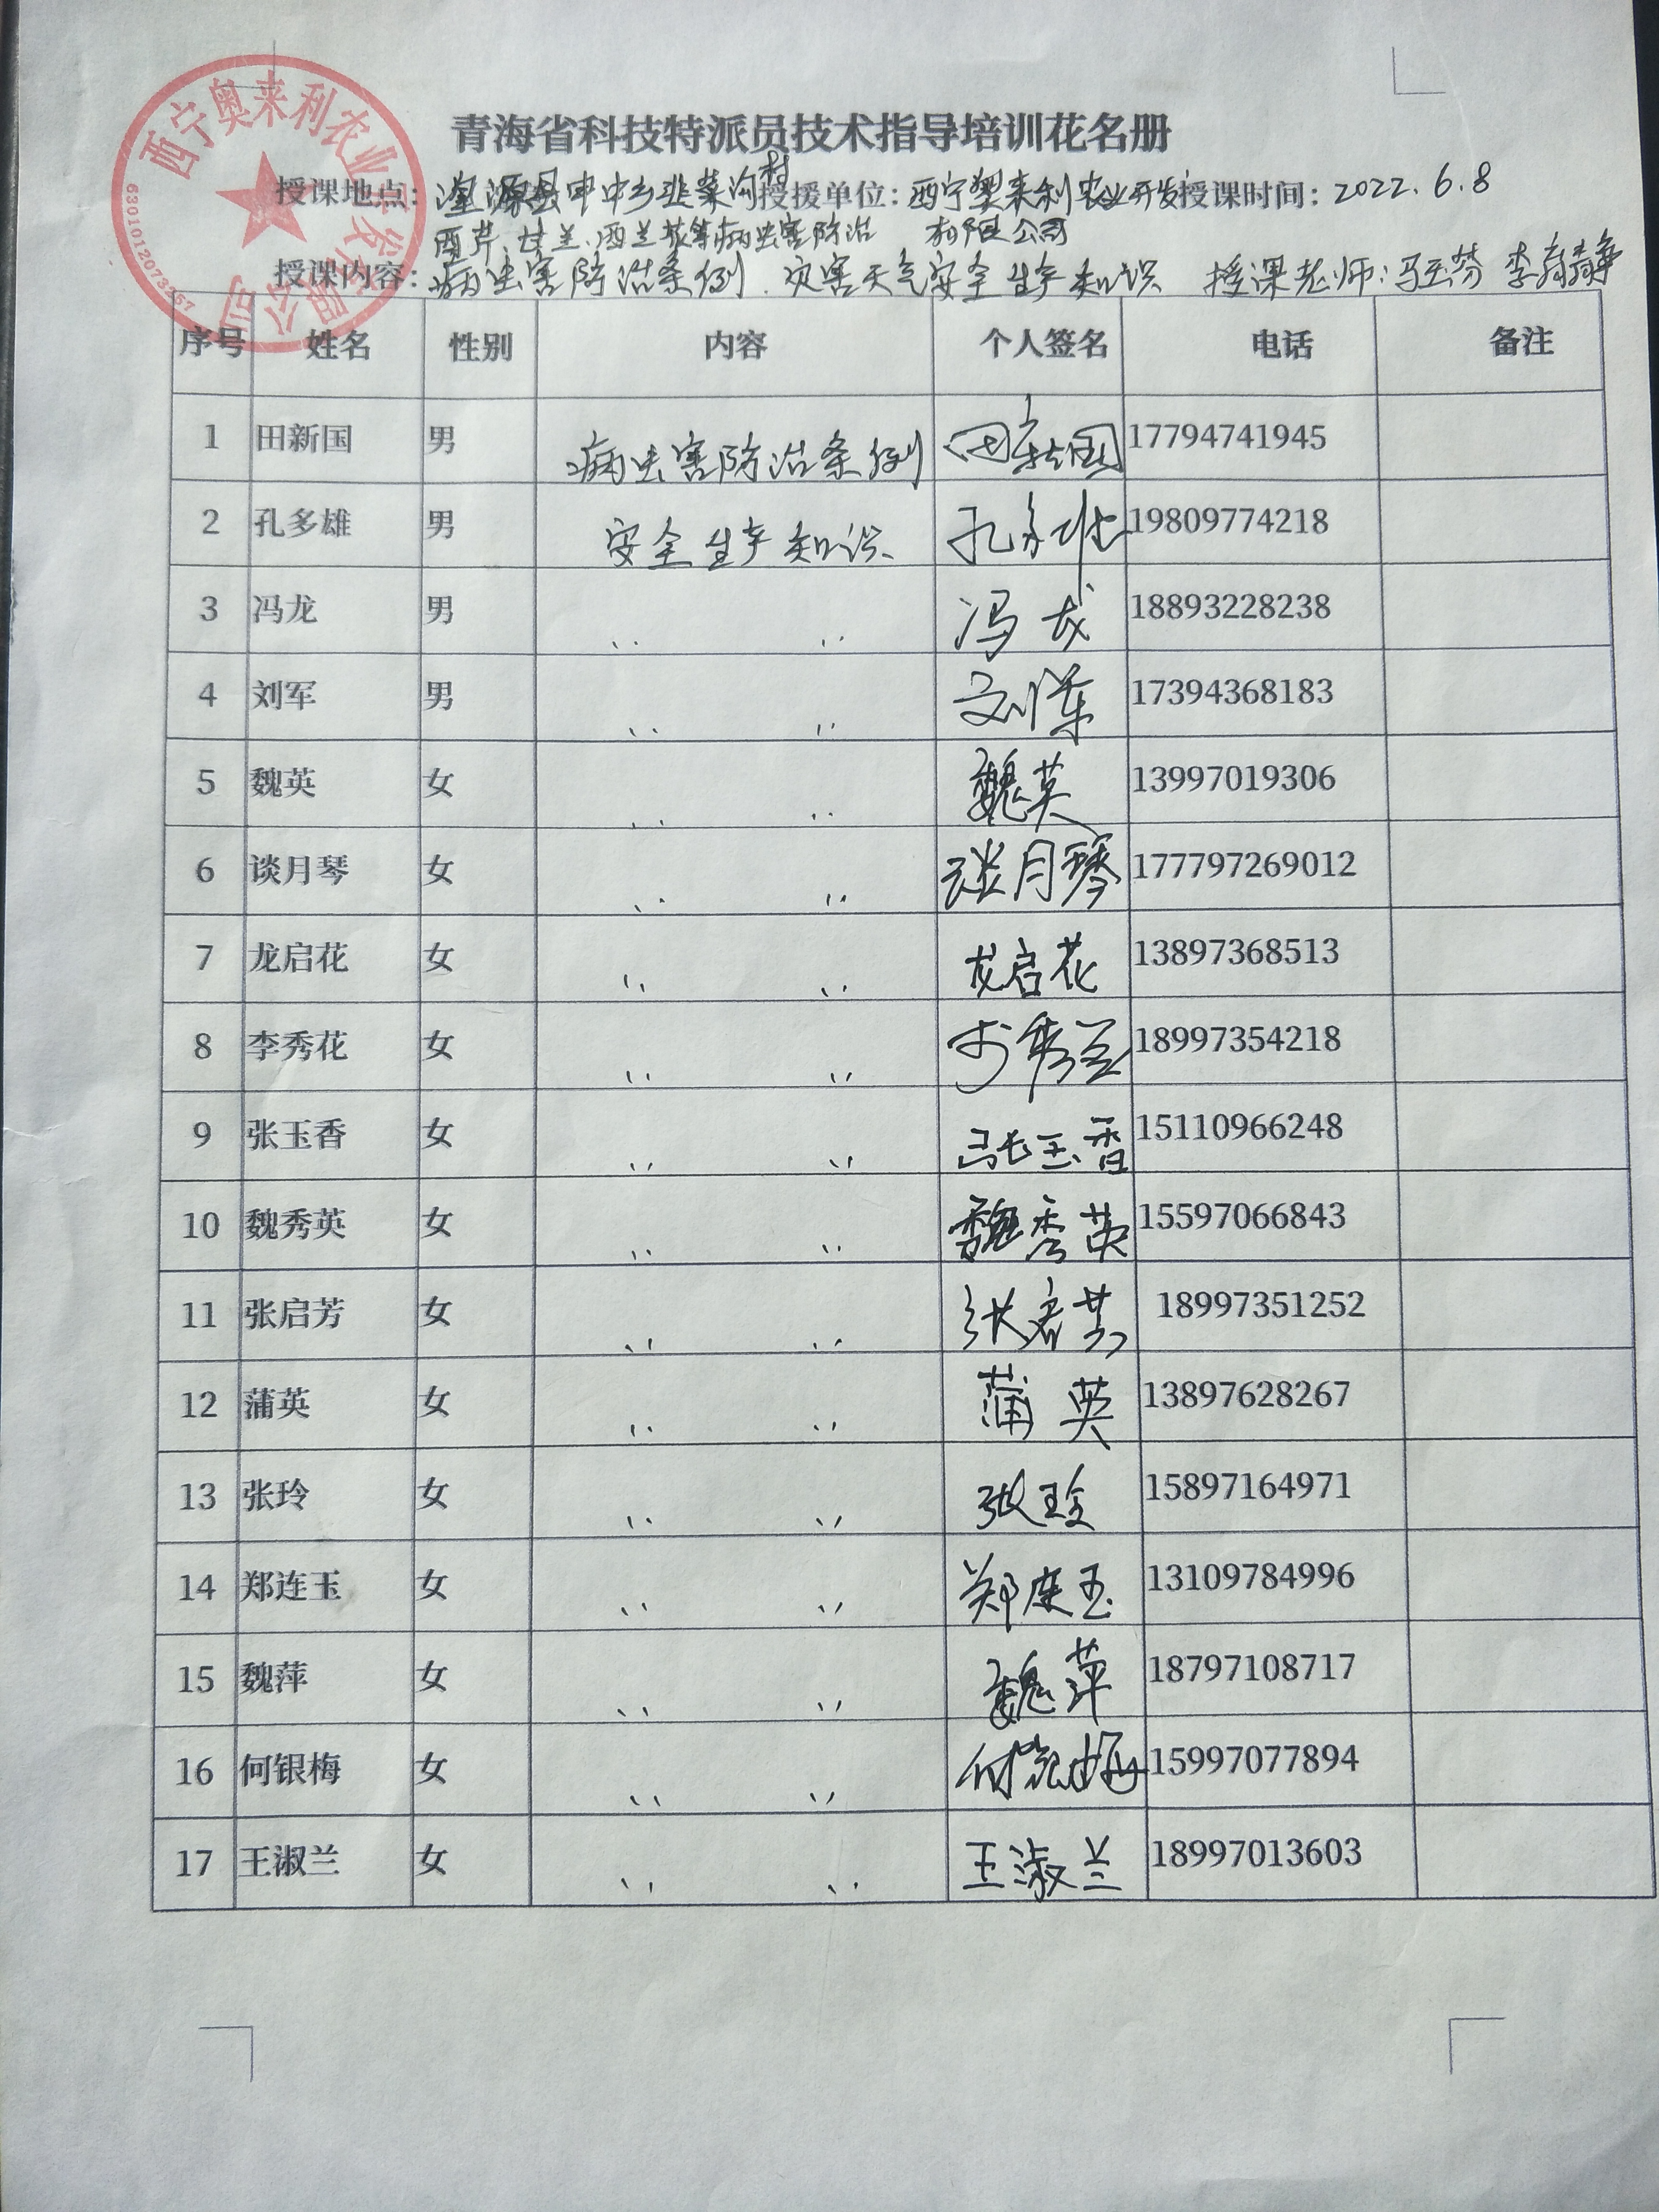 西宁奥来利农业开发有限公司
6301012073267
青海省科技特派员技术指导培训花名册
授课地点：湟源县申中乡韭菜沟村 授援单位：西宁奥来利农业开发有限公司 授课时间：2022.6.8
西芹、甘兰、西兰花等病虫害防治
授课内容：病虫害防治条例、灾害天气安全生产知识 授课老师：马玉芬 李静
序号 姓名 性别 内容 个人签名 电话 备注
1 田新国 男 病虫害防治条例 田新国 17794741945
2 孔多雄 男 安全生产知识 孔多雄 19809774218
3 冯龙 男 〃 〃 冯龙 18893228238
4 刘军 男 〃 〃 刘军 17394368183
5 魏英 女 〃 〃 魏英 13997019306
6 谈月琴 女 〃 〃 谈月琴 177797269012
7 龙启花 女 〃 〃 龙启花 13897368513
8 李秀花 女 〃 〃 李秀兰 18997354218
9 张玉香 女 〃 〃 张玉香 15110966248
10 魏秀英 女 〃 〃 魏秀英 15597066843
11 张启芳 女 〃 〃 张启芳 18997351252
12 蒲英 女 〃 〃 蒲英 13897628267
13 张玲 女 〃 〃 张玲 15897164971
14 郑连玉 女 〃 〃 郑连玉 13109784996
15 魏萍 女 〃 〃 魏萍 18797108717
16 何银梅 女 〃 〃 何银梅 15997077894
17 王淑兰 女 〃 〃 王淑兰 18997013603